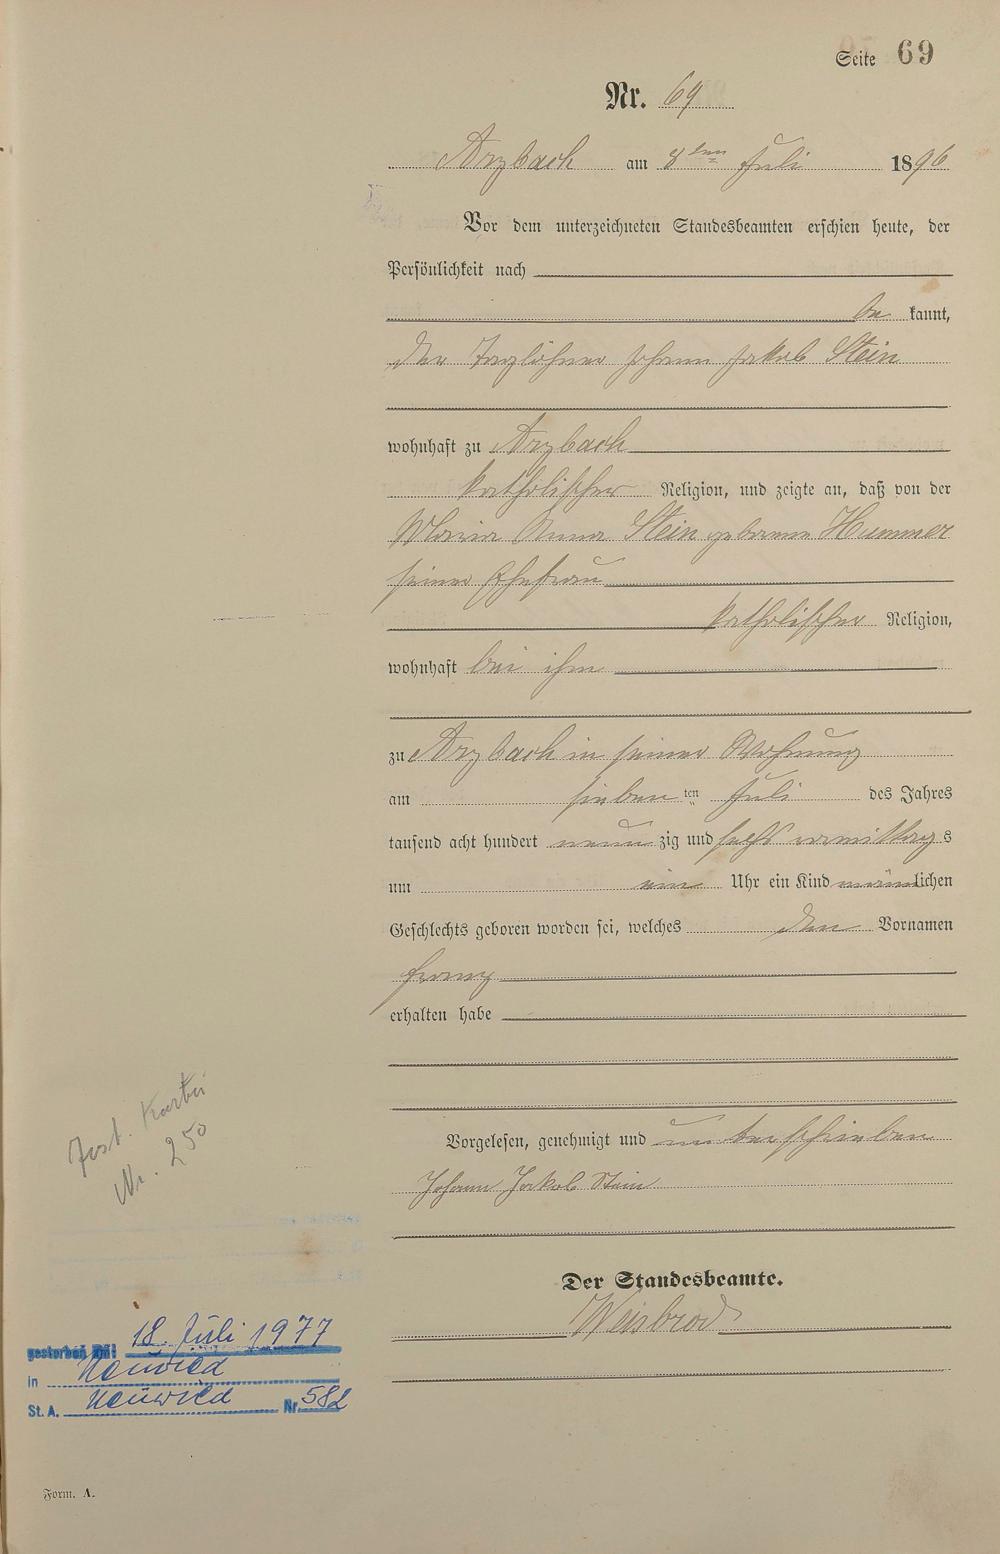 Seite 69
Nr. 69
Arzbach am 8ten Juli 1896
Vor dem unterzeichneten Standesbeamten erschien heute, der
Persönlichkeit nach
be kannt,
der Taglöhner Johann Jakob Stein
wohnhaft zu Arzbach
katholischer Religion, und zeigte an, daß von der
Maria Anna Stein geborene Hummer
seiner Ehefrau
katholischer Religion,
wohnhaft bei ihm
zu Arzbach in seiner Wohnung
am sieben ten Juli des Jahres
tausend acht hundert neun zig und sechs vormittag s
um ein Uhr ein Kind männlichen
Geschlechts geboren worden sei, welches den Vornamen
Franz
erhalten habe
Vorgelesen, genehmigt und unterschrieben
Johann Jakob Stein
Der Standesbeamte.
Weisbrod
Kartei
Nr. 250
gestorben am: 18. Juli 1977
in Neuwied
St. A. Neuwied Nr. 582
Form. A.